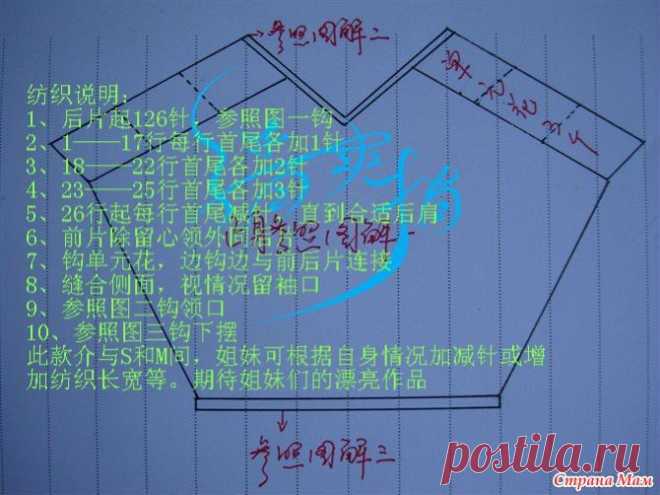 参照图解二
单元花
纺织说明：
1、后片起126针，参照图一钩
2、1——17行每行首尾各加1针
3、18——22行首尾各加2针
4、23——25行首尾各加3针
5、26行起每行首尾减针，直到合适后肩
6、前片除留心领外同后片
身参照图解一
7、钩单元花，边钩边与前后片连接
8、缝合侧面，视情况留袖口
9、参照图二钩领口
10、参照图三钩下摆
此款介与S和M间，姐妹可根据自身情况加减针或增
加纺织长宽等。期待姐妹们的漂亮作品
参照图解三
postila.ru
Страна Мам